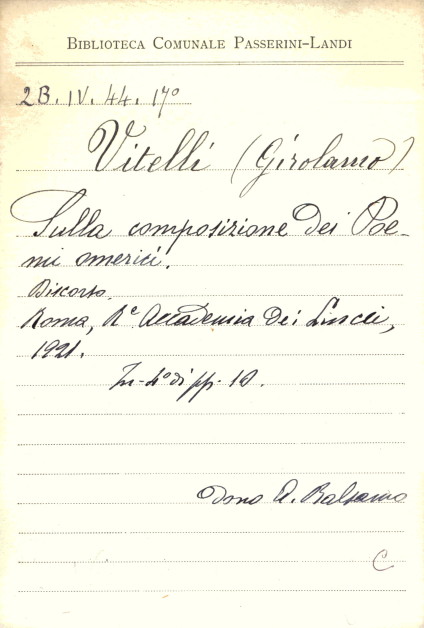 BIBLIOTECA COMUNALE PASSERINI-LANDI
2B. IV. 44. 17°
Vitelli (Girolamo)
Sulla composizione dei Poe-
mi omerici.
Discorso.
Roma, Rᵉ Accademia dei Lincei,
1921.
In-4° di pp. 10.
Dono A. Balsamo
C